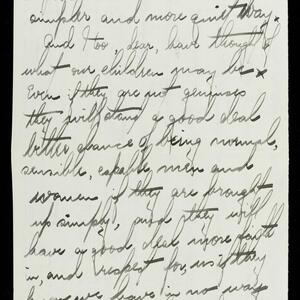 simpler and more quiet way.
And I too, dear, have thought of
what our children may be x
Even if they are not geniuses
they will stand a good deal
better chance of being normal,
sensible, capable, men and
women if they are brought
up simply, and they will
have a good deal more faith
in, and respect for, us if they
know we have in no way